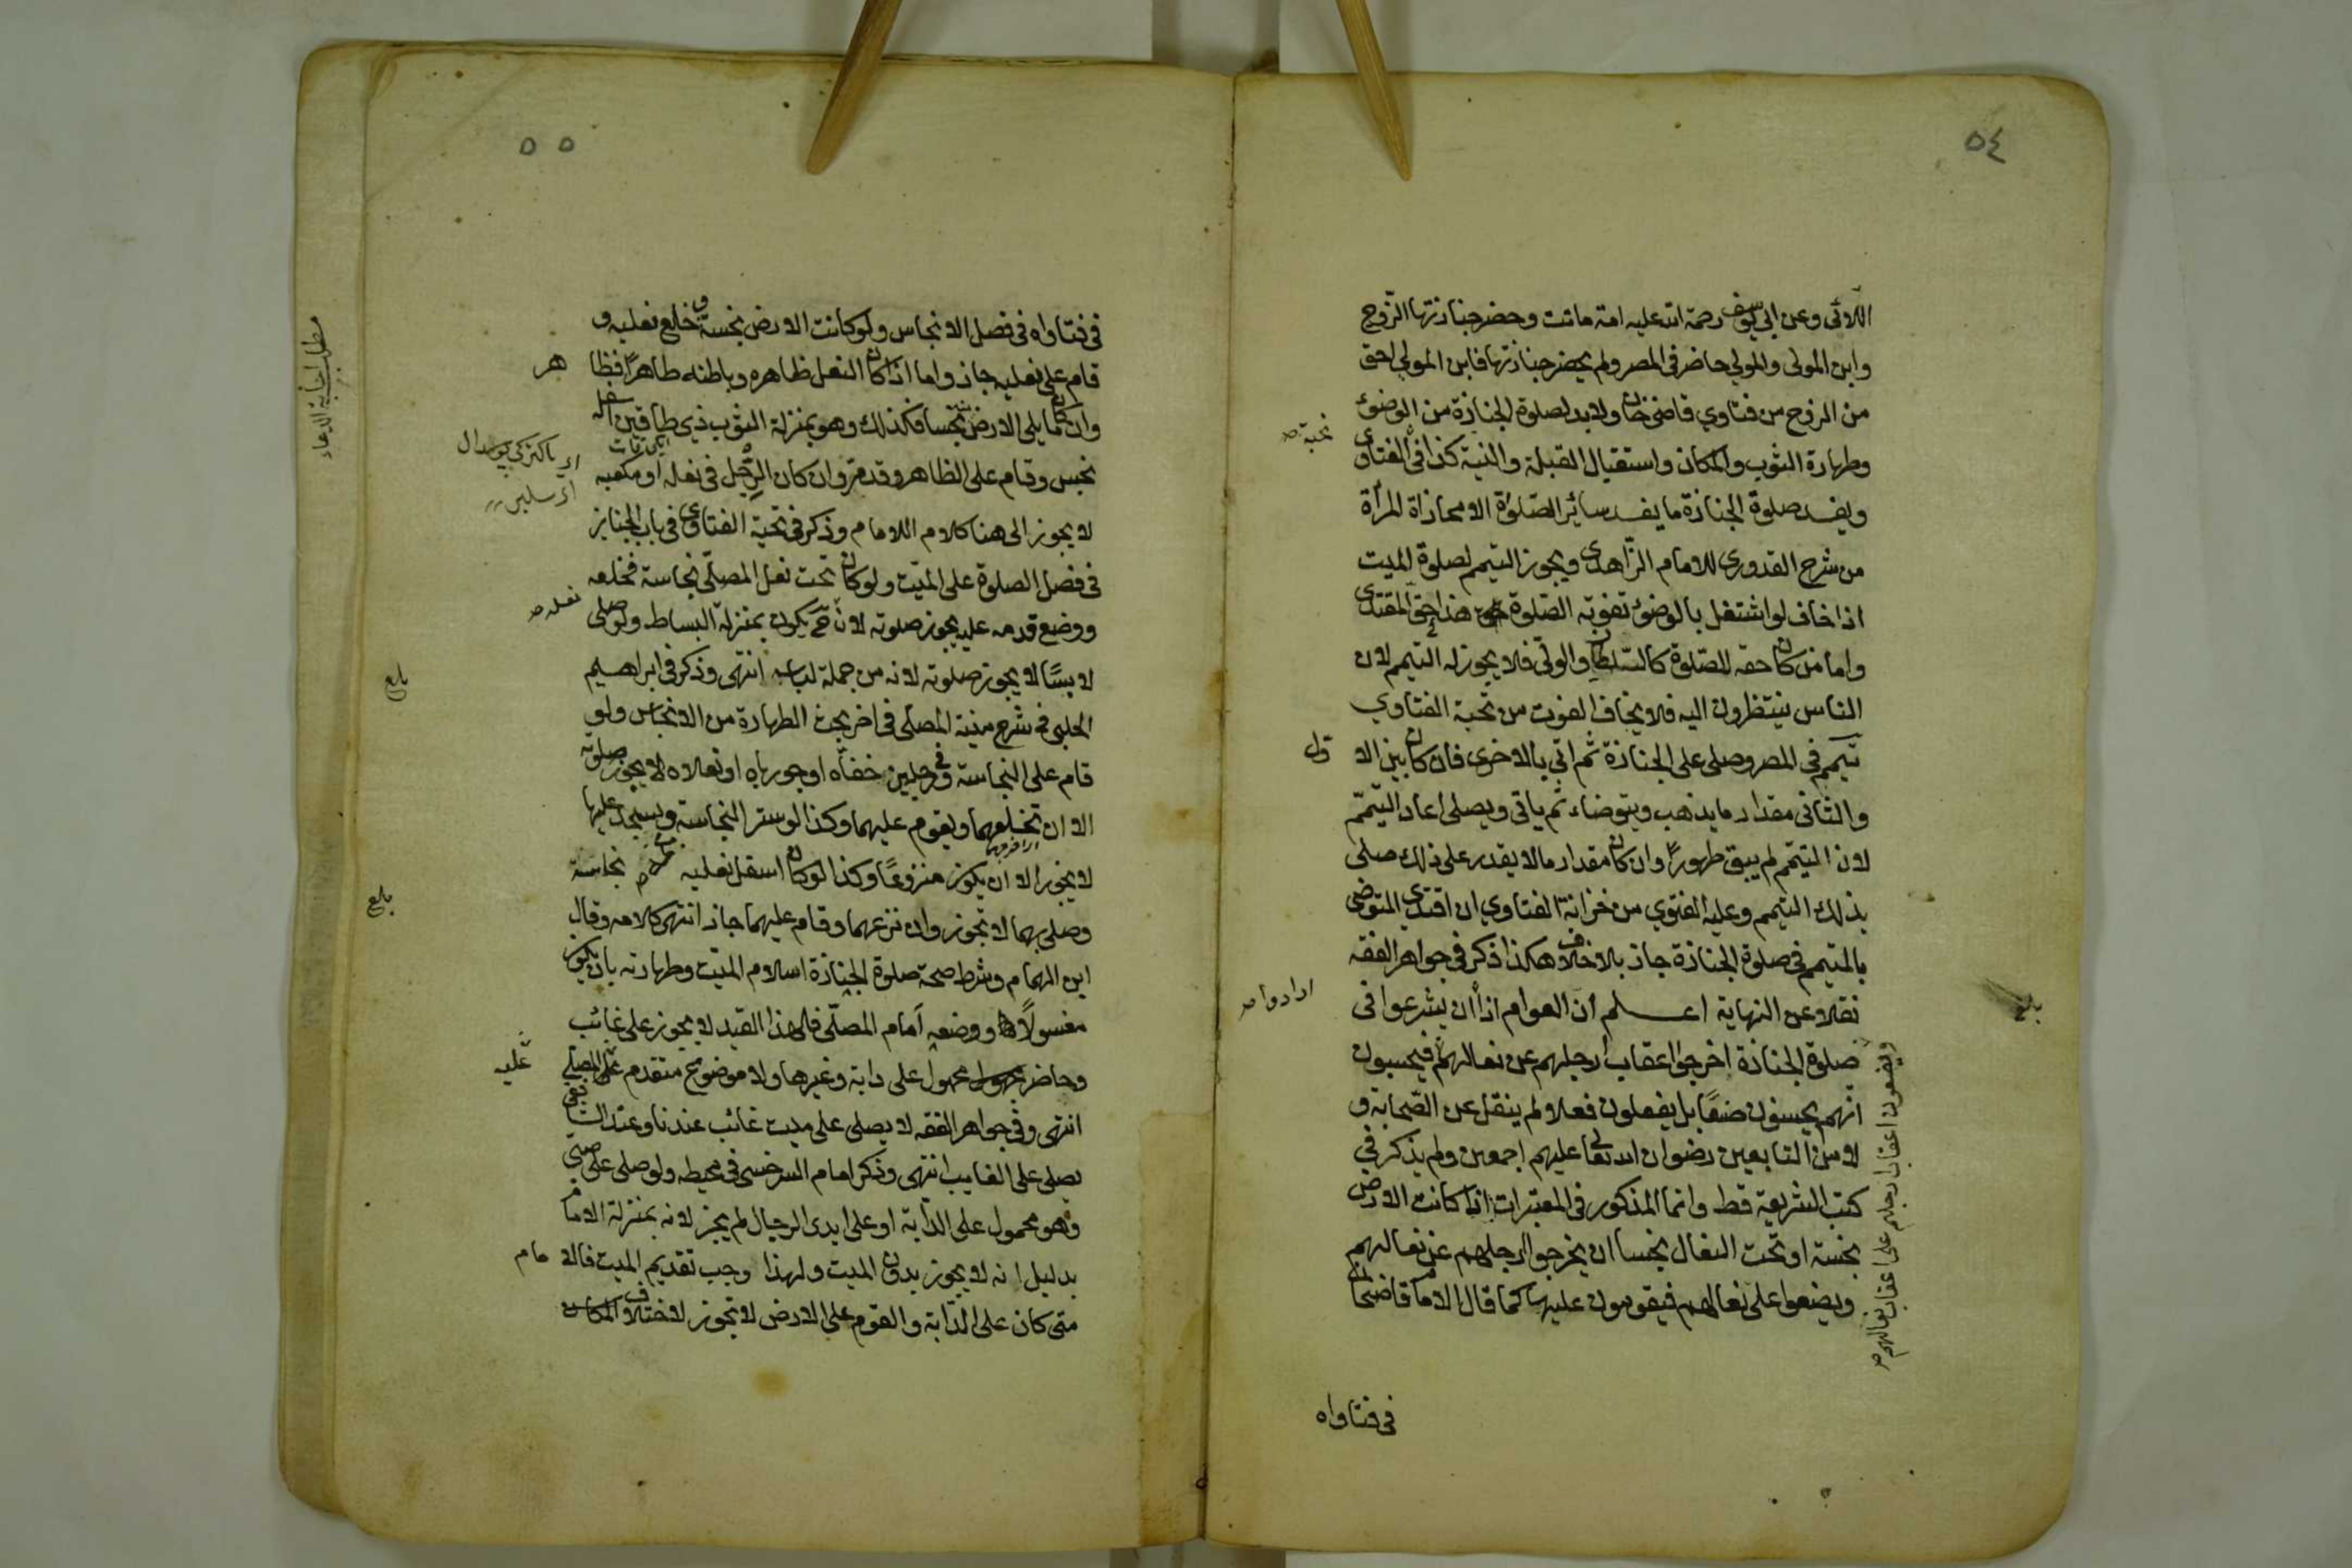 ٥٤
اللائى وعن ابي يوسف رحمة الله عليه امة ماتت وحضر جنازتها الزوج
وابن المولى والمولي حاضر فى المصر ولم يحضر جنازتها فابن المولي احق
من الزوج من فتاوي قاضى خان ولابد لصلوة الجنازة من الوضوئ
وطهارة الثوب والمكان واستقبال القبلة والنية كذا فى الفتاوى
نخبة صح
ويفسد صلوة الجنازة ما يفسد سائر الصلوة الا محاذاة المرأة
من شرح القدورى للامام الزاهدى ويجوز التيمم لصلوة الميت
اذا خاف لو اشتغل بالوضوئ تفوته الصلوة هذا حق المقتدى
واما من كان حقه للصلوة كالسلطان والولى فلا يجوز له التيمم لان
الناس ينتظرون اليه فلا يخاف الفوت من نخبة الفتاوي
تيمم فى المصر وصلى على الجنازة ثم اتى بالاخرى فان كان بين الا ول
والثانى مقدار ما يذهب ويتوضاء ثم ياتى ويصلى اعاد التيمم
لان التيمم لم يبق طهورا وان كان مقدار ما لا يقدر على ذلك صلى
بذلك التيمم وعليه الفتوي من خزانة الفتاوي ان اقتدى المتوضى
بالمتيمم فى صلوة الجنازة جاز بلا خلاف هكذا ذكر فى جواهر الفقه
نقلا عن النهاية اعلم ان العوام اذا ان يشرعوا فى
ارادوا صح
صلوة الجنازة اخرجوا اعقاب ارجلهم عن نعالهم فيحسبون
ويضعون اعقاب ارجلهم على اعقاب نعالهم صح
انهم يحسنون صنعا بل يفعلون فعلا لم ينقل عن الصحابة و
لا من التابعين رضوان الله تعالى عليهم اجمعين ولم يذكر في
كتب الشريعة قط وانما المذكور فى المعتبرات اذا كانت الارض
نجسة او تحت النعال نجسا ان يخرجوا ارجلهم عن نعالهم
ويضعوا على نعالهم فيقومون عليها كما قال الامام قاضيخان
فى فتاواه
بلغ
٥٥
فى فتاواه فى فصل الانجاس ولو كانت الارض نجسة و خلع نعليه و
قام على نعليه جاز واما اذا كان النعل ظاهره وباطنه طاهرا فظا هر
وان كان ما يلى الارض منه نجسا فكذلك وهو بمنزلة الثوب ذي طاقين اسفله
نجس وقام على الظاهر وقد مر وان كان الرجل فى نعله او مكعبه
لا يجوز الى هنا كلام اللامام وذكر فى نخبة الفتاوى فى باب الجنايز
فى فصل الصلوة على الميت ولو كان تحت نعل المصلى نجاسة فخلعه
نعله صح
ووضع قدمه عليه يجوز صلوته لان ح يكون بمنزلة البساط ولو صلى
لابسا لا يجوز صلوته لانه من جملة لباسه انتهى وذكر فى ابراهيم
بلغ
الحلبى فى شرح منية المصلى فى اخر بحث الطهارة من الانجاس ولو
قام على النجاسة وفى رجليه خفاه او جورباه او نعلاه لا يجوز صلوته
الا ان تخلعهما ويقوم عليهما وكذا لو ستر النجاسة ويسجد عليها
لا يجوز الا ان يكون منزوعا وكذا لو كان اسفل نعليه نجاسة
بلغ
وصلى بهما لا تجوز وان نزعهما وقام عليهما جاز انتهى كلامه وقال
ابن الهمام وشرط صحة صلوة الجنازة اسلام الميت وطهارته بان يكون
مغسولا ووضعه امام المصلى فلهذا القيد لا يجوز على غائب
وحاضر محمول على دابة وغيرها ولا موضوع متقدم على المصلى
عليه
انتهى وفى جواهر الفقه لا يصلى على ميت غائب عندنا وعند الشافعى
يصلى على الغايب انتهى وذكر امام السرخسى فى محيطه ولو صلى على صبى
وهو محمول على الدابة او على ايدى الرجال لم يجز لانه بمنزلة الامام
بدليل انه لا يجوز بدون الميت ولهذا وجب تقديم الميت فالا مام
متى كان على الدابة والقوم على الارض لا تجوز لاختلاف المكان